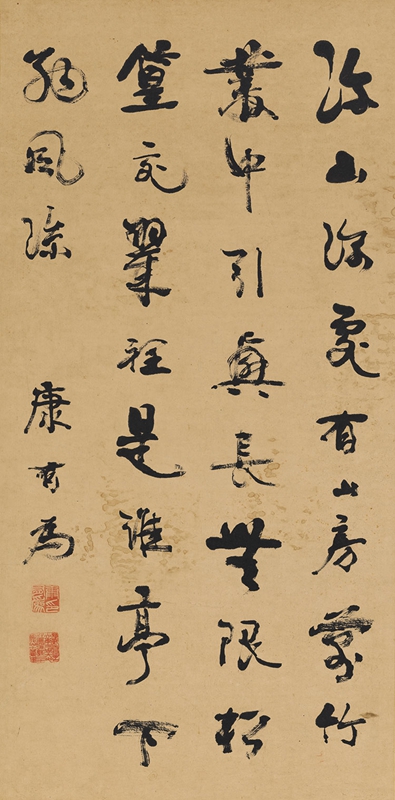 深山深處有山房萬竹
叢中引興長無限松
篁交翠徑是誰亭下
獨風流
康有為